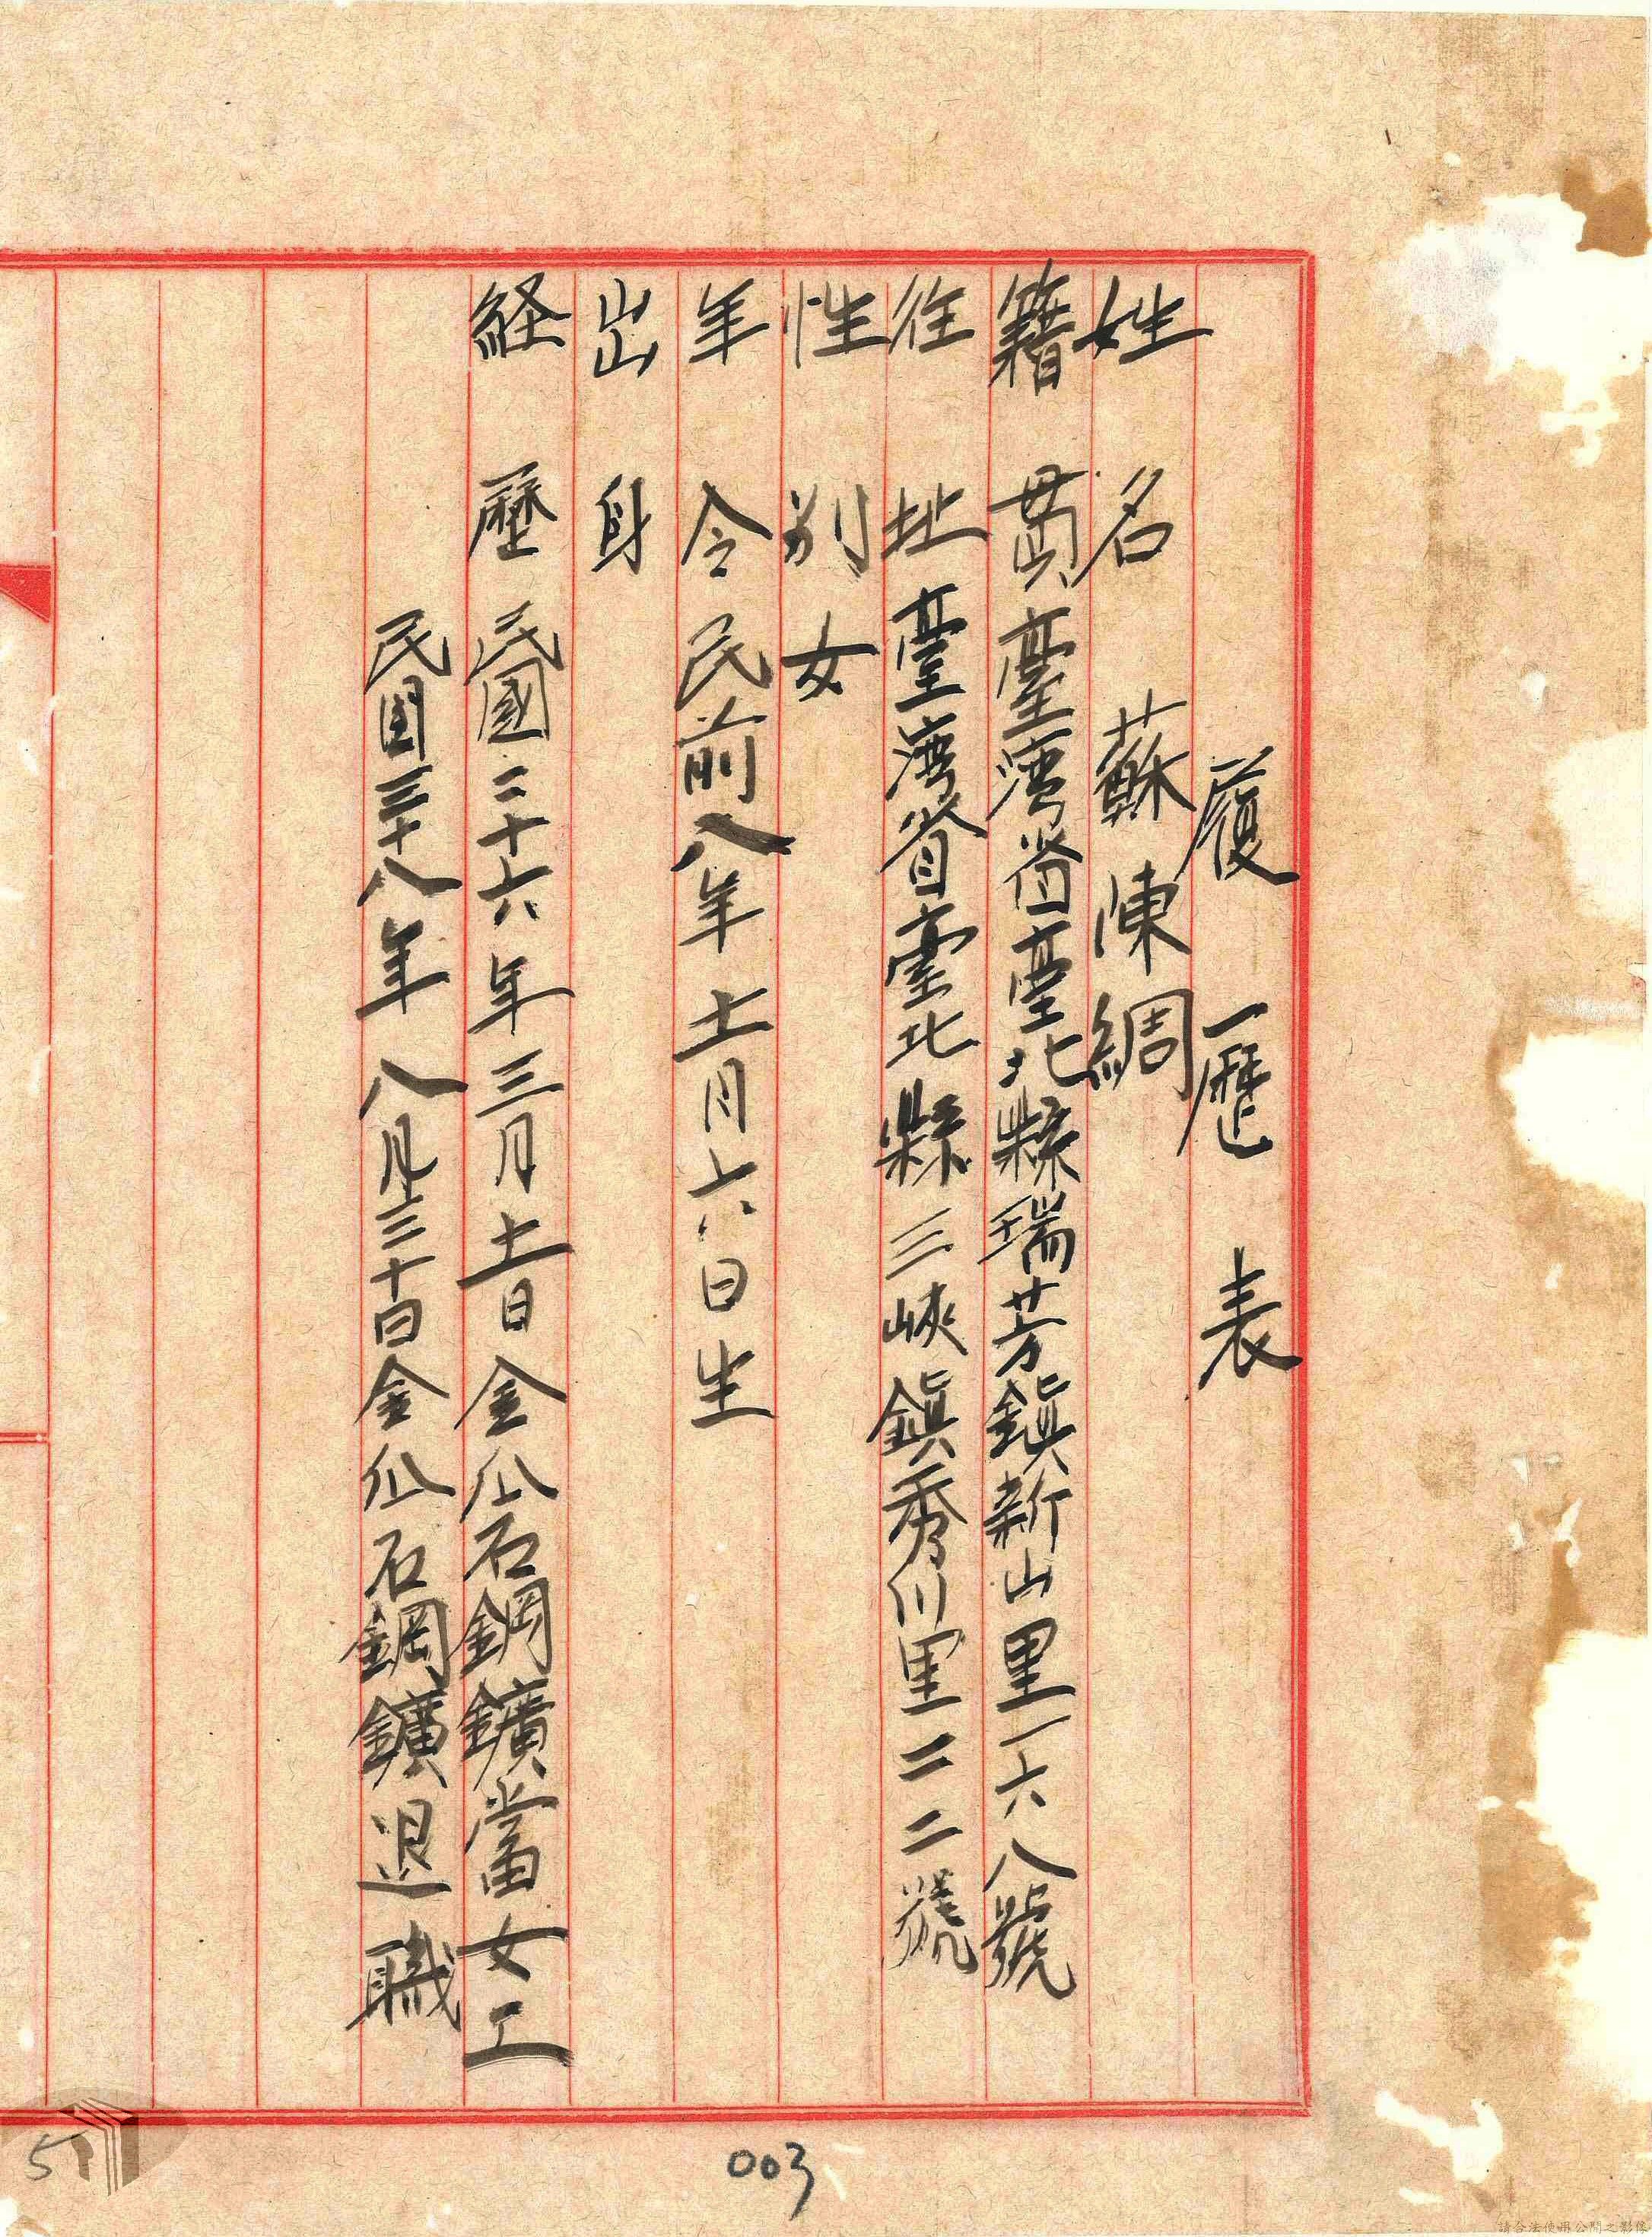 履歷表
姓名 蘇陳綢
籍貫 臺灣省臺北縣瑞芳鎮新山里一六八號
住址 臺灣省臺北縣三峽鎮秀川里二二號
性別 女
年令 民前八年十一月六日生
出身
経歷 民國二十六年三月十一日金瓜石鋼鑛當女工
民国三十八年八月三十日金瓜石鋼鑛退職
003
5
請合法使用公開之影像